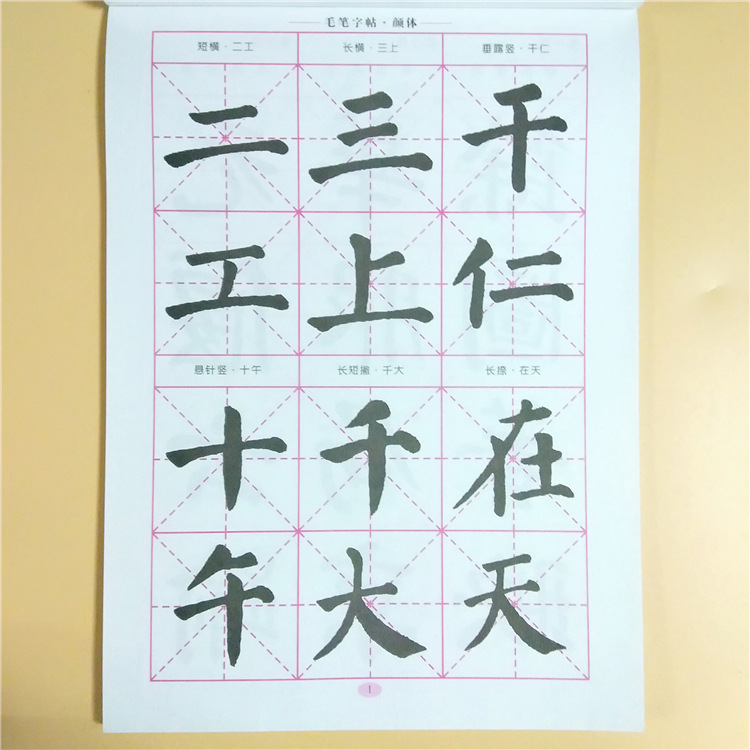 毛笔字帖·颜体
短横·二工 长横·三上 垂露竖·干仁
二 三 干
工 上 仁
悬针竖·十午 长短撇·千大 长捺·在天
十 千 在
午 大 天
1